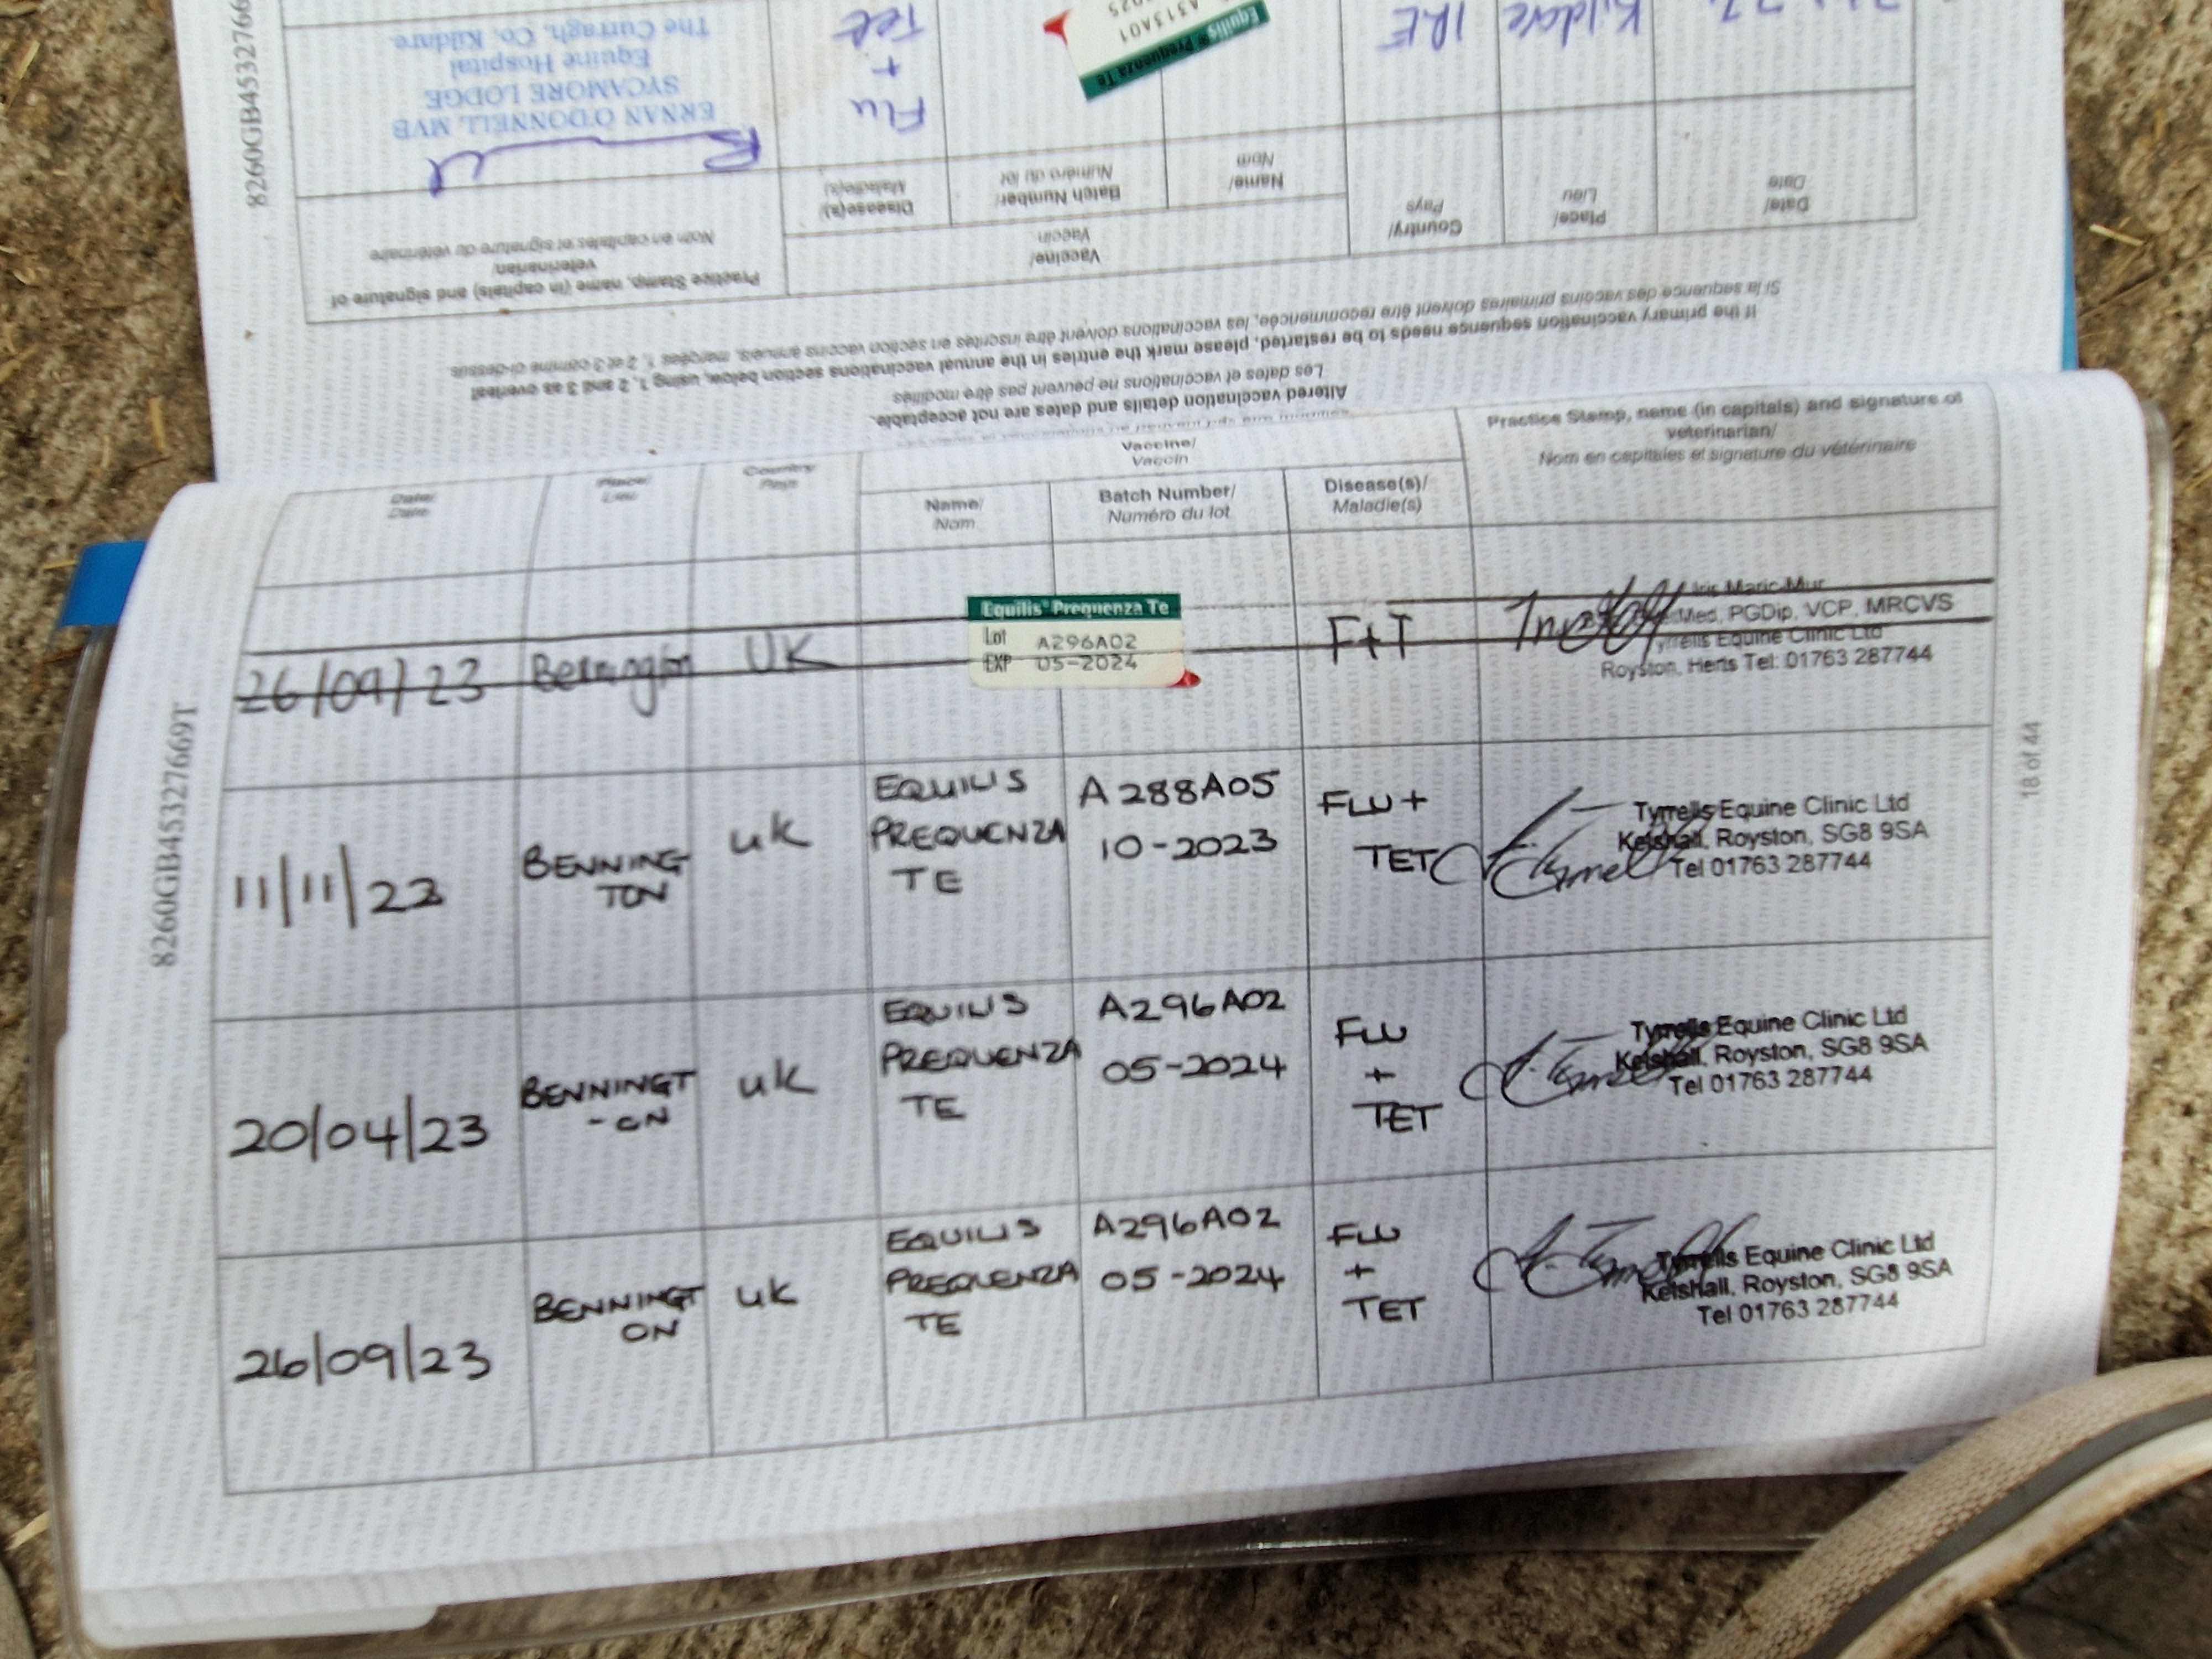 Altered vaccination details and dates are not acceptable.
Les dates et vaccinations ne peuvent pas être modifiés
If the primary vaccination sequence needs to be restarted, please mark the entries in the annual vaccinations section below, using 1, 2 and 3 as overleaf
Si la sequence des vaccins primaires doivent être recommencée, les vaccinations doivent être inscrites en section vaccins annuels, marqées 1, 2 et 3 comme ci-dessus
Date/
Date
Place/
Lieu
Country/
Pays
Vaccine/
Vaccin
Name/
Nom
Batch Number/
Numéro du lot
Disease(s)/
Maladie(s)
Practice Stamp, name (in capitals) and signature of
veterinarian/
Nom en capitales et signature du vétérinaire
Kildare
IRE
Equilis® Prequenza Te
A313A01
Flu
+
Tet
ERNAN O'DONNELL, MVB
SYCAMORE LODGE
Equine Hospital
The Curragh, Co. Kildare.
Date/
Date
Place/
Lieu
Country/
Pays
Vaccine/
Vaccin
Name/
Nom
Batch Number/
Numéro du lot
Disease(s)/
Maladie(s)
Practice Stamp, name (in capitals) and signature of
veterinarian/
Nom en capitales et signature du vétérinaire
26/09/23
Bennington
UK
Equilis® Prequenza Te
Lot A296A02
EXP 05-2024
F+T
Iris Maric-Mur
Med, PGDip, VCP, MRCVS
Tyrrells Equine Clinic Ltd
Royston, Herts Tel: 01763 287744
11/11/22
BENNING
TON
UK
EQUILIS
PREQUENZA
TE
A288A05
10-2023
FLU +
TET
Tyrrells Equine Clinic Ltd
Kelshall, Royston, SG8 9SA
Tel 01763 287744
20/04/23
BENNINGT
-ON
UK
EQUILIS
PREQUENZA
TE
A296A02
05-2024
FLU
+
TET
Tyrrells Equine Clinic Ltd
Kelshall, Royston, SG8 9SA
Tel 01763 287744
26/09/23
BENNINGT
ON
UK
EQUILIS
PREQUENZA
TE
A296A02
05-2024
FLU
+
TET
Tyrrells Equine Clinic Ltd
Kelshall, Royston, SG8 9SA
Tel 01763 287744
8260GB45327669T
18 of 44